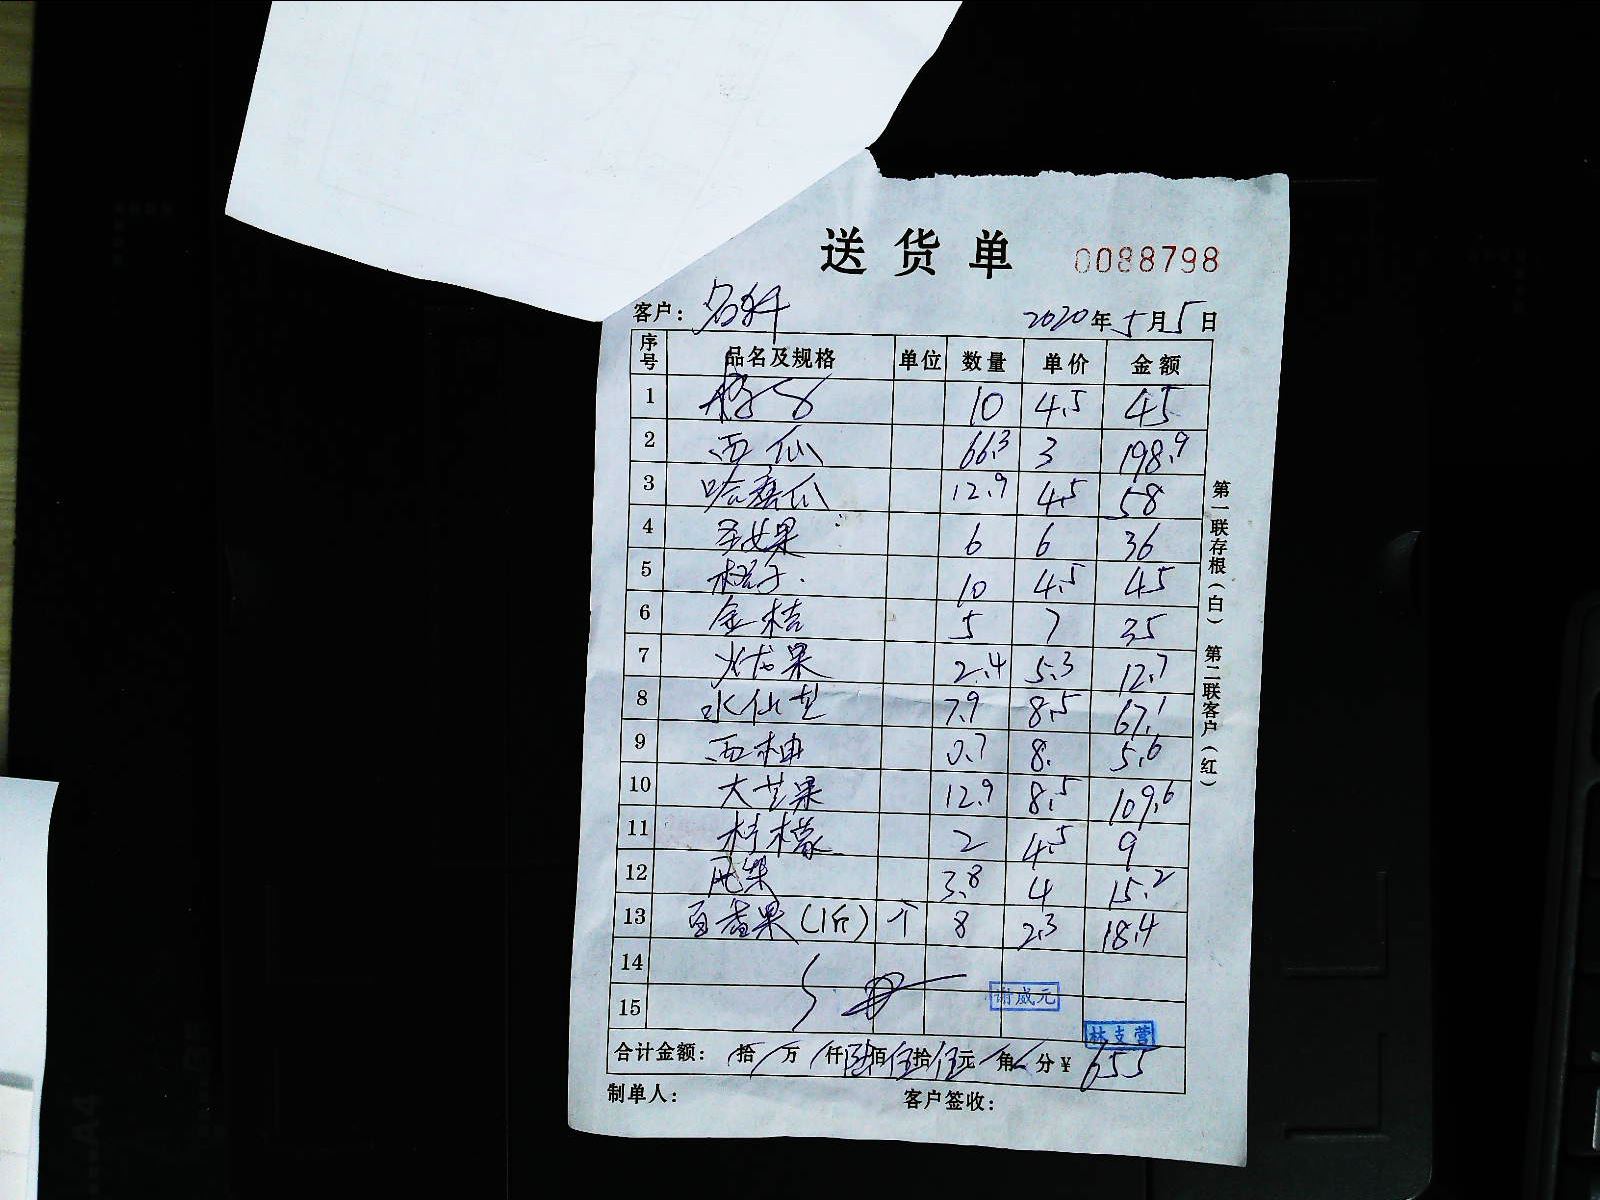 送货单 0088798
客户： 名轩 2020年5月5日
序号 品名及规格 单位 数量 单价 金额
1 10 4.5 45
2 西瓜 66.3 3 198.9
3 哈蜜瓜 12.9 4.5 58
4 圣女果 6 6 36
5 橙子 10 4.5 45
6 金桔 5 7 35
7 火龙果 2.4 5.3 12.7
8 水仙芒 7.9 8.5 67.1
9 西柚 0.7 8. 5.6
10 大芒果 12.9 8.5 109.6
11 柠檬 2 4.5 9
12 3.8 4 15.2
13 百香果（1斤） 个 8 2.3 18.4
14
15
谢威元
林支营
合计金额： 拾 万 仟 陆佰 伍拾 伍元 角 分 ¥ 655
制单人： 客户签收：
第一联存根（白） 第二联客户（红）
A4